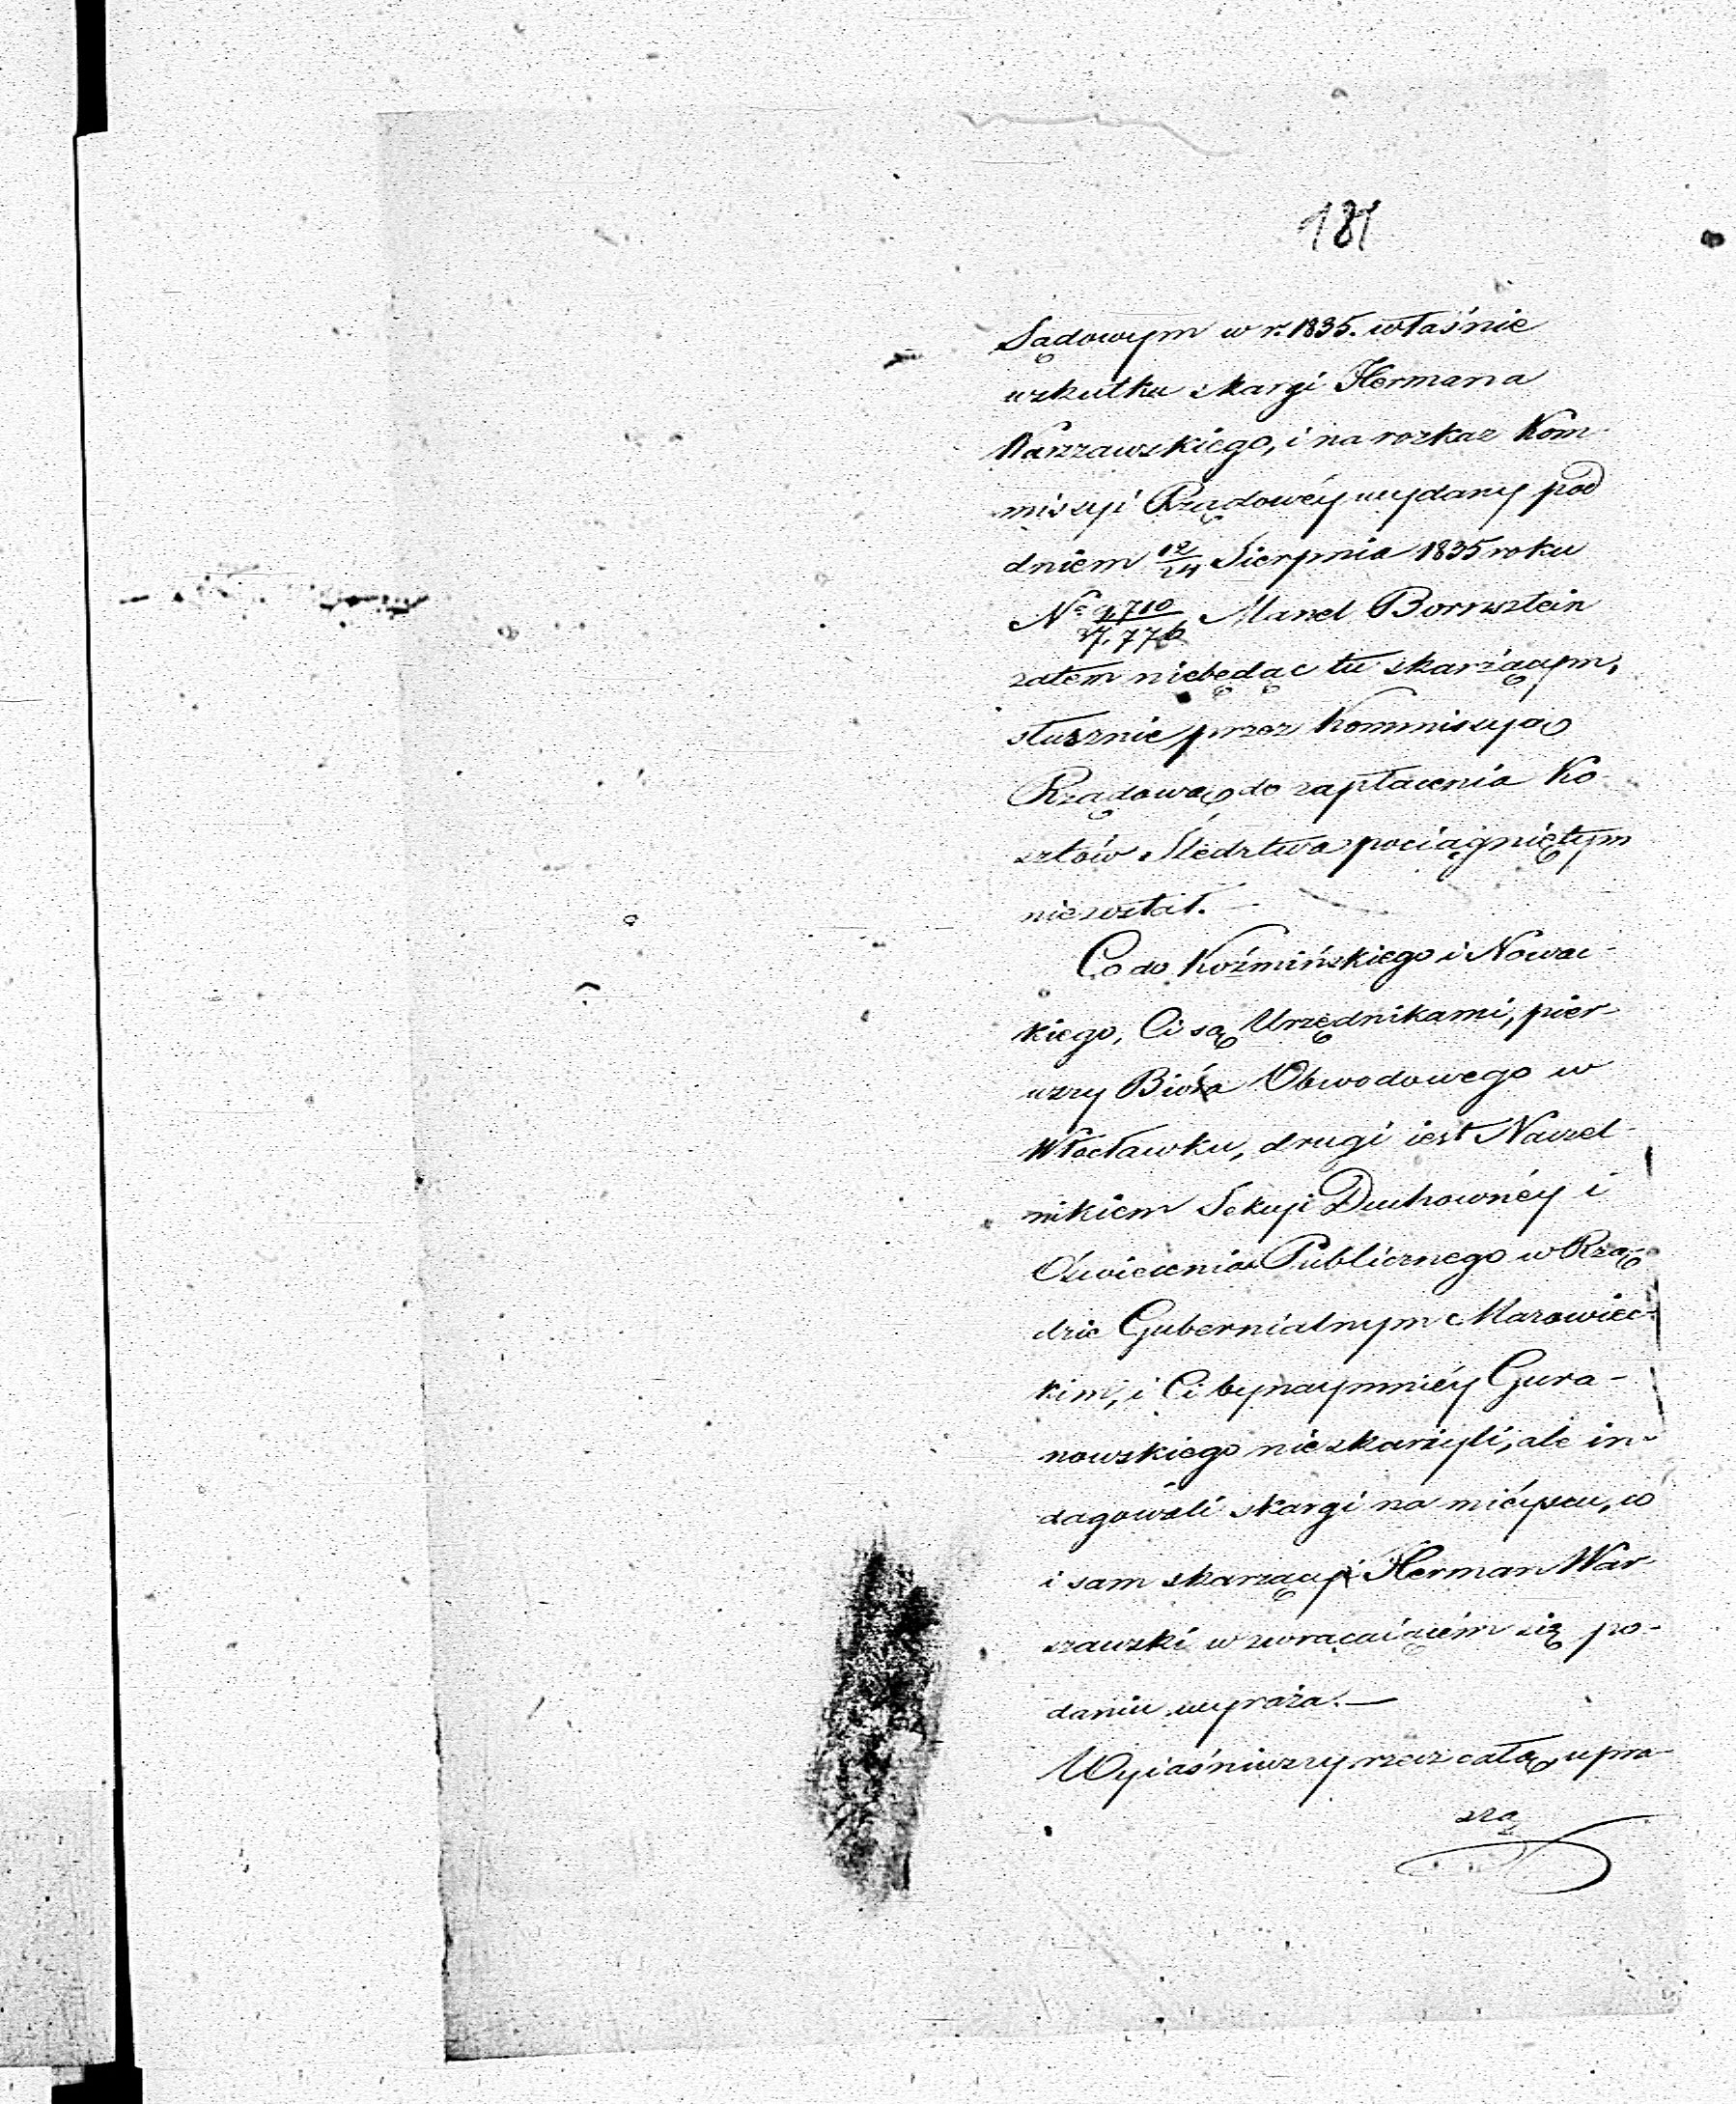 181
Sądowym w r. 1835. właśnie
wskutku skargi Hermana
Warszawskiego, i na rozkaz Kom-
missyi Rządowéy wydany pod
dniem 12/24 Sierpnia 1835 roku
Nº 9,710/27,776 Manel Bornsztein
zatem niebędąc tu skarżącym,
słusznie przez Kommissyą
Rządową do zapłacenia Ko-
sztów Śledztwa pociągniętym
niezostał. —
Co do Koźmińskiego i Nowac-
kiego, Ci są Urzędnikami, pier-
wszy Bióra Obwodowego w
Włocławku, drugi iest Naczel-
nikiem Sekcyi Duchownéy i
Oświecenia Publicznego w Rzą-
dzie Gubernialnym Mazowiec-
kim, i Ci bynaymniéy Gura-
nowskiego nieskarżyli, ale in-
dagowali skargi na mieyscu, co
i sam skarżący Herman War-
szawski w zwracaiącém się po-
daniu wyraża. —
Wyiaśniwszy rzecz całą, upra-
sza